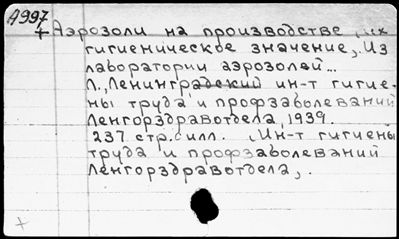 А997
Аэрозоли на производстве, их
гигиеническое значение, Из
лаборатории аэрозолей...
Л., Ленинградский ин-т гигие-
ны труда и профзаболеваний
Ленгорздравотдела, 1939.
237 стр. с илл. (Ин-т гигиены
труда и профзаболеваний
Ленгорздравотдела),.